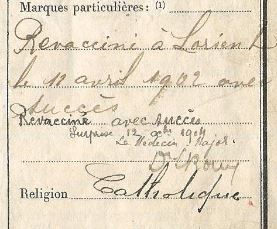 Marques particulières : (1)
Revacciné à Lorient
le 11 avril 1902 avec
succès
Revacciné avec succès
12 1904
Le Médecin Major
Religion Catholique